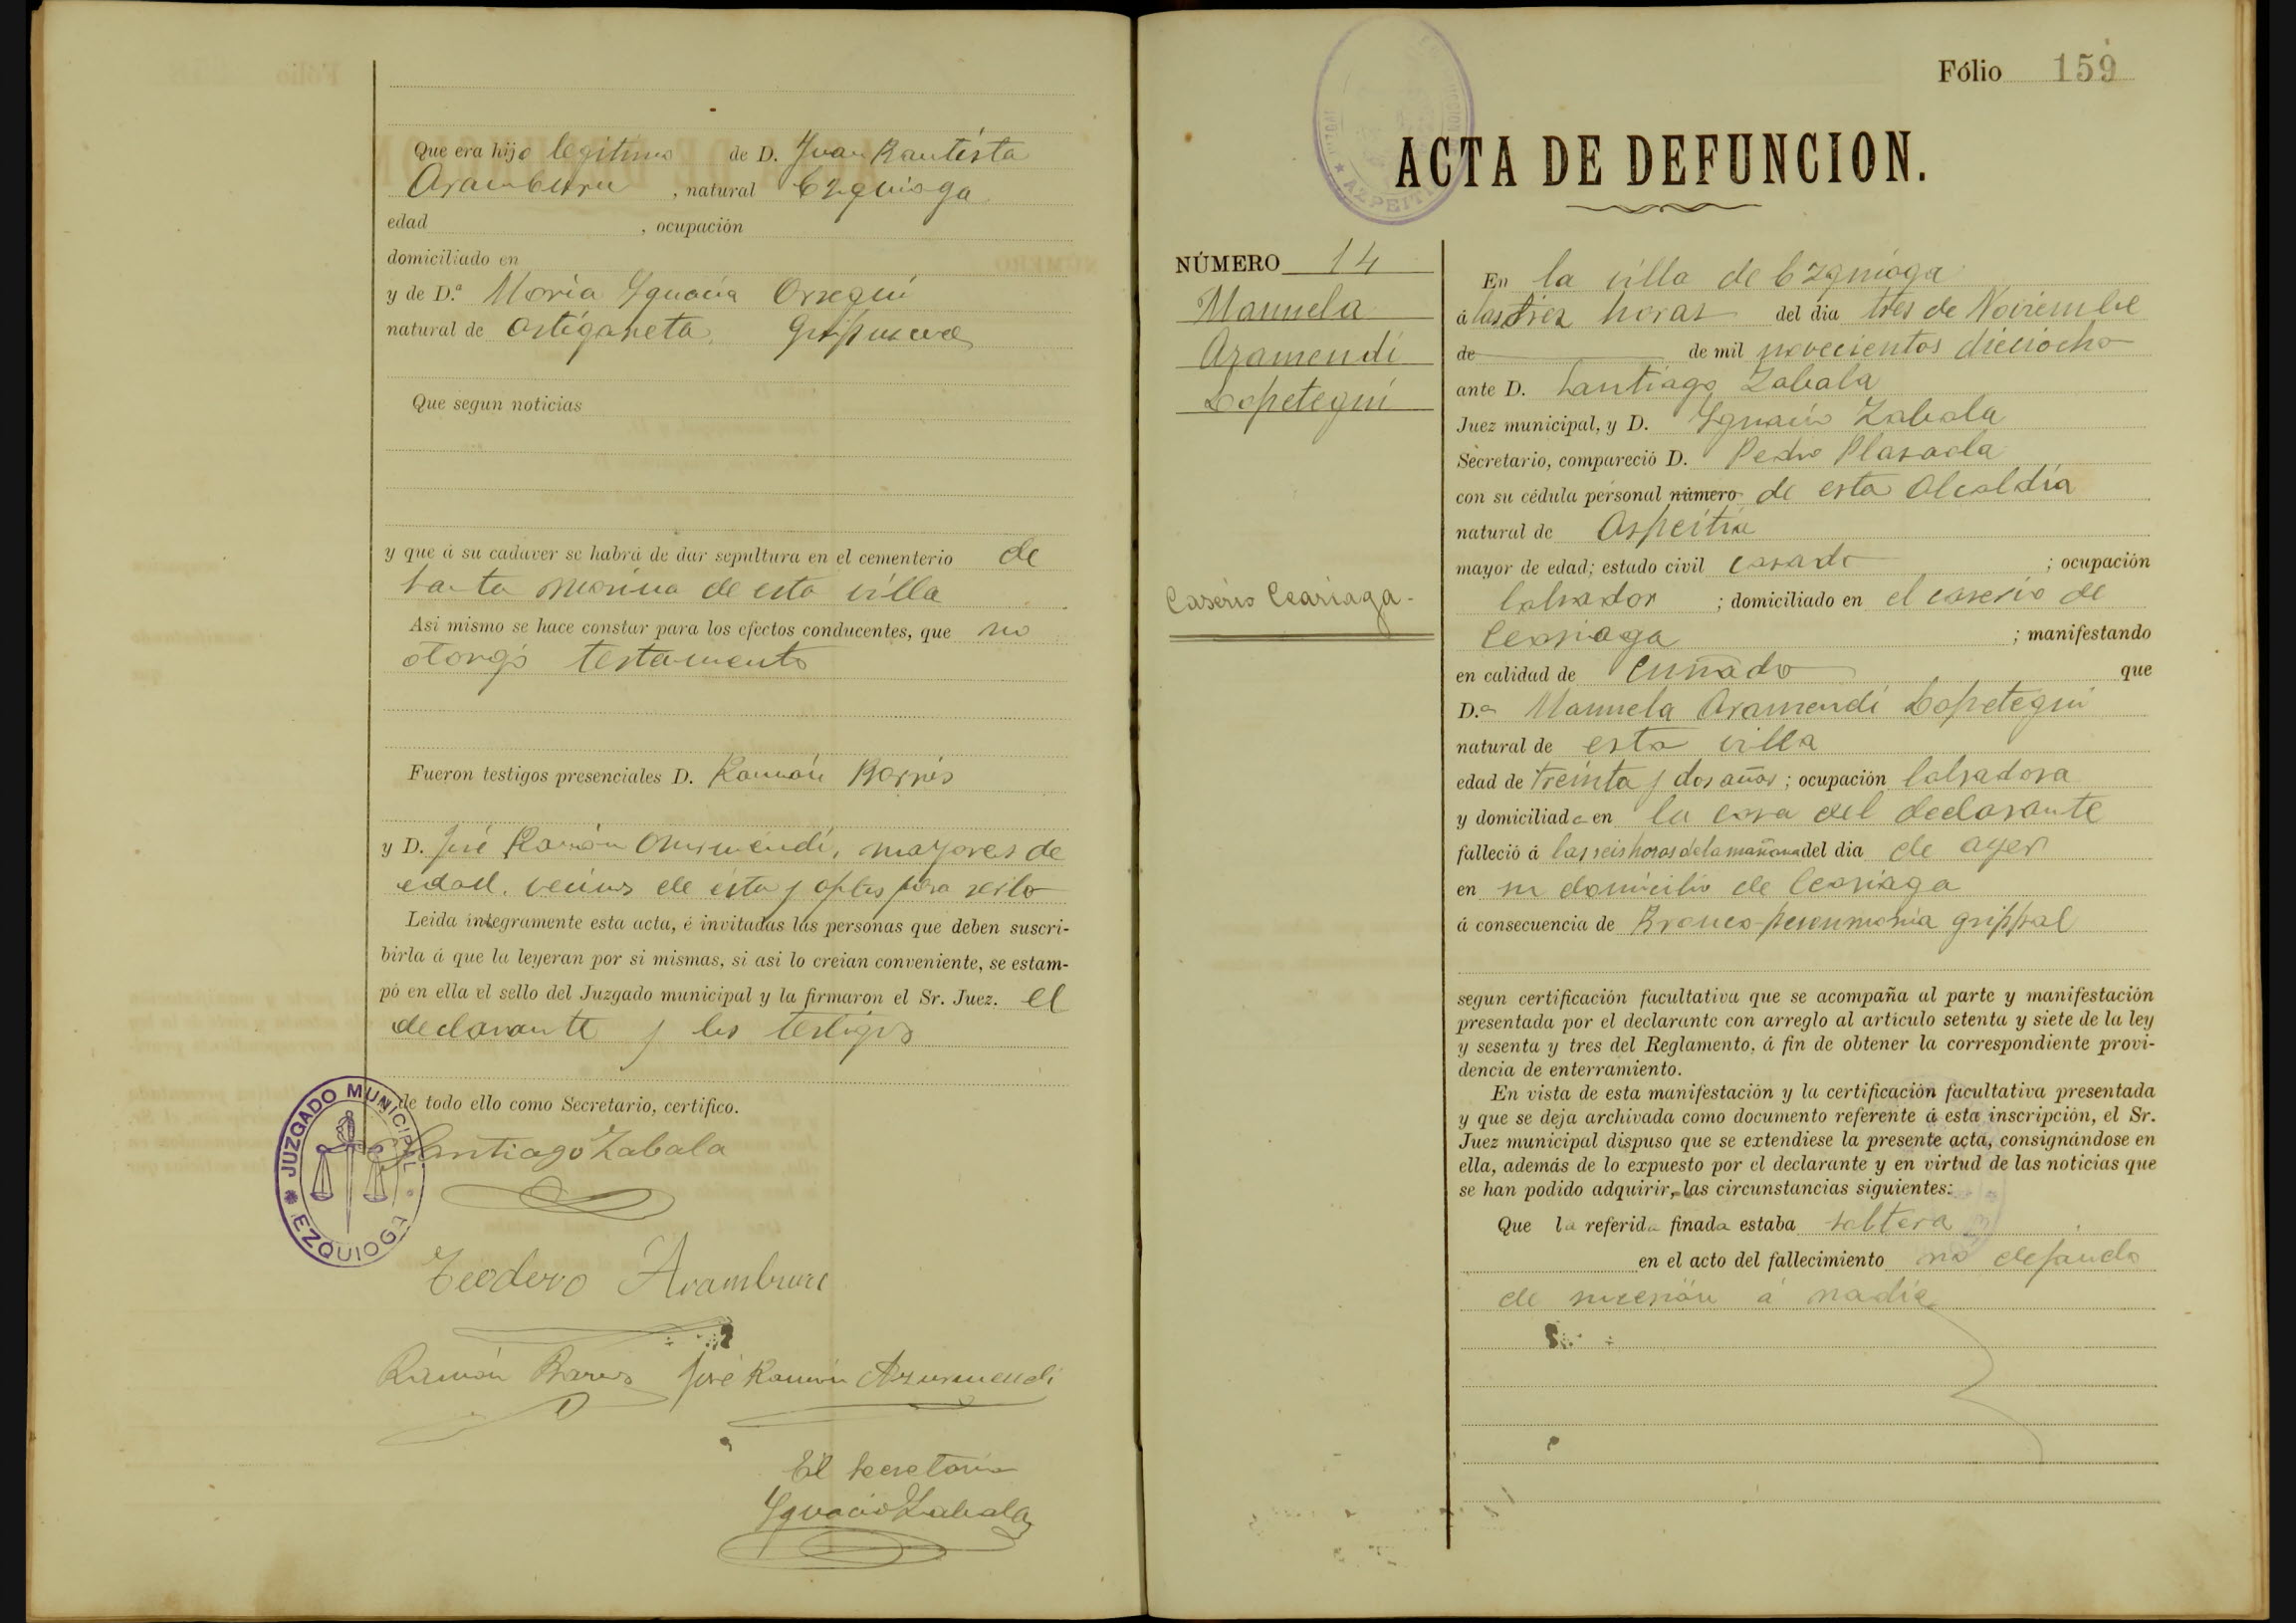 Que era hijo legitimo de D. Juan Bautista
Aramburu, natural Ezquioga
edad , ocupación
domiciliado en
y de D.ª Maria Ygnacia Orsegui
natural de Astigarreta, Guipuzcoa
Que segun noticias
y que á su cadaver se habrá de dar sepultura en el cementerio de
Santa Marina de esta villa
Asi mismo se hace constar para los efectos conducentes, que no
otorgó testamento
Fueron testigos presenciales D. Ramón Barrés
y D. José Ramón Azurmendi, mayores de
edad, vecinos de esta y aptos para serlo
Leida integramente esta acta, é invitadas las personas que deben suscri-
birla á que la leyeran por si mismas, si asi lo creian conveniente, se estam-
pó en ella el sello del Juzgado municipal y la firmaron el Sr. Juez. el
declarante y los testigos
de todo ello como Secretario, certifico.
JUZGADO MUNICIPAL EZQUIOGA
Santiago Zabala
Teodoro Aramburu
Ramón Barres José Ramón Azurmendi
El Secretario
Ygnacio Zabala
Fólio 159
AZPEITIA
ACTA DE DEFUNCION.
NÚMERO 14
Manuela
Aramendi
Lopetegui
Caserio Ceariaga
En la villa de Ezquioga
á las diez horas del dia tres de Noviembre
de de mil novecientos dieciocho
ante D. Santiago Zabala
Juez municipal, y D. Ygnacio Zabala
Secretario, compareció D. Pedro Plazaola
con su cédula personal número de esta Alcaldía
natural de Aspeitia
mayor de edad; estado civil casado ; ocupación
labrador ; domiciliado en el caserio de
Ceariaga ; manifestando
en calidad de cuñado que
D.ª Manuela Aramendi Lopetegui
natural de esta villa
edad de treinta y dos años; ocupación labradora
y domiciliada en la casa del declarante
falleció á las seis horas de la mañana del dia de ayer
en su domicilio de Ceariaga
á consecuencia de Bronco-pneumonia grippal
segun certificación facultativa que se acompaña al parte y manifestación
presentada por el declarante con arreglo al articulo setenta y siete de la ley
y sesenta y tres del Reglamento, á fin de obtener la correspondiente provi-
dencia de enterramiento.
En vista de esta manifestación y la certificación facultativa presentada
y que se deja archivada como documento referente á esta inscripción, el Sr.
Juez municipal dispuso que se extendiese la presente acta, consignándose en
ella, además de lo expuesto por el declarante y en virtud de las noticias que
se han podido adquirir, las circunstancias siguientes:
Que la referida finada estaba soltera
en el acto del fallecimiento no dejando
de sucesión á nadie